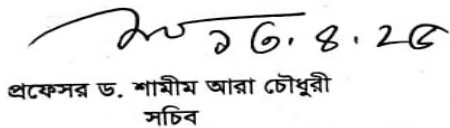 ১৩.৪.২৫
প্রফেসর ড. শামীম আরা চৌধুরী
সচিব